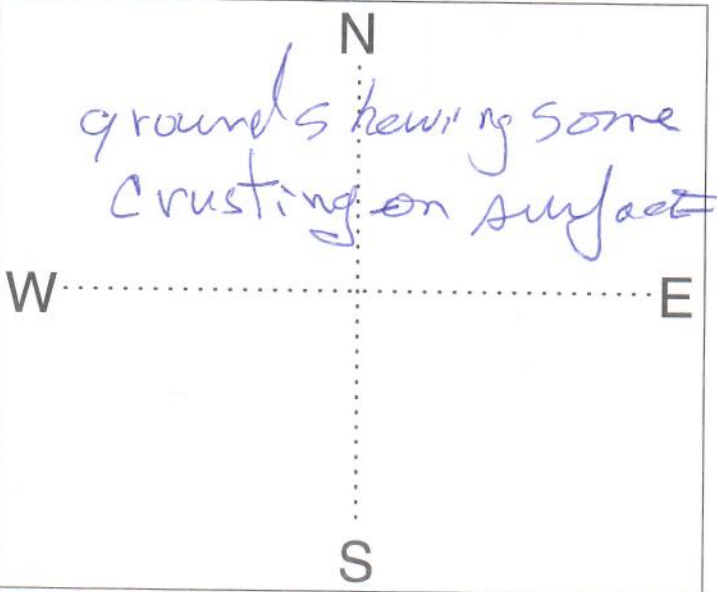 N
ground showing some
crusting on surface
W E
S